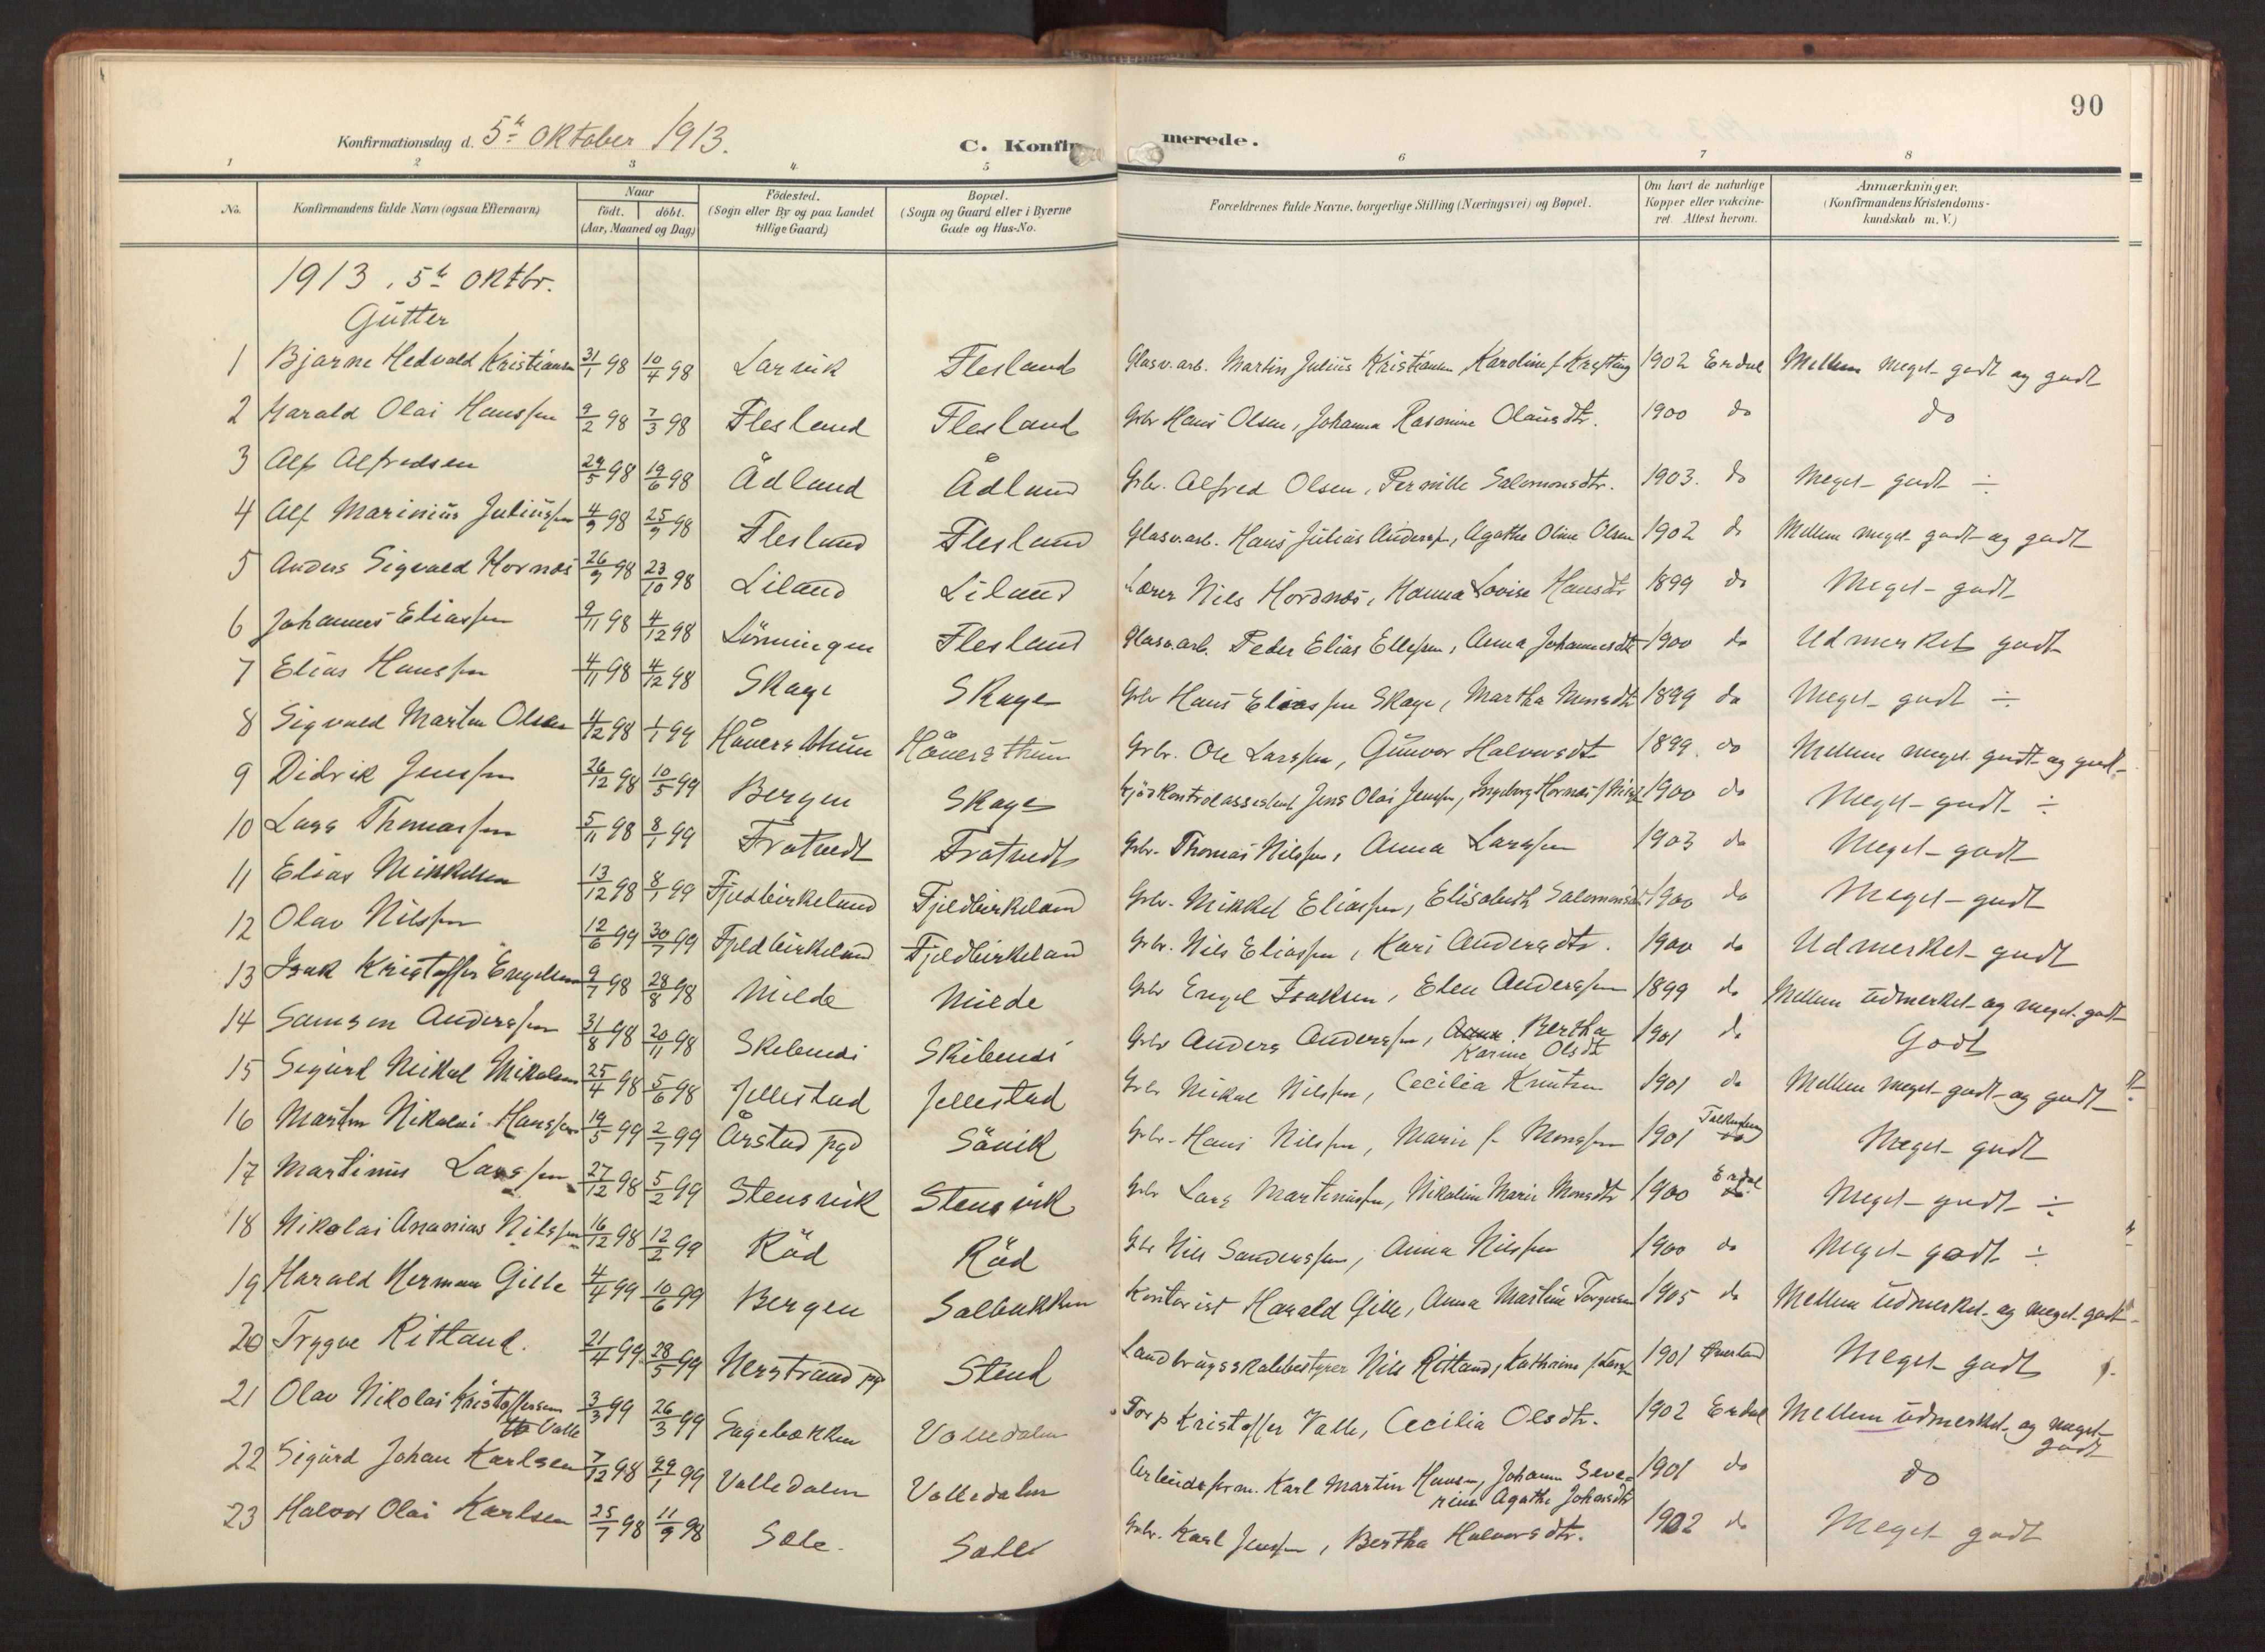 90
Konfirmationsdag d. 5te Oktober 1913.
C. Konfir merede.
1 2 3 4 5 6 7 8
No. Konfirmandens fulde Navn (ogsaa Efternavn) Naar født. døbt. (Aar, Maaned og Dag) Fødested. (Sogn eller By og paa Landet tillige Gaard) Bopæl. (Sogn og Gaard eller i Byerne Gade og Hus-No. Forældrenes fulde Navne, borgerlige Stilling (Næringsvei) og Bopæl. Om havt de naturlige Kopper eller vakcineret. Attest herom. Anmærkninger. (Konfirmandens Kristendomskundskab m. V.)
1913, 5te Oktbr.
Gutter
1 Bjarne Hedvald Kristiansen 31/1 98 10/4 98 Larvik Flesland Glasv.arb. Martin Julius Kristiansen, Karoline f. Krefting 1902 Erdal Mellem meget godt og godt
2 Harald Olai Hanssen 9/2 98 7/3 98 Flesland Flesland Gbr Hans Olsen, Johanna Rasmine Olausdtr. 1900 do do
3 Alf Alfredsen 29/5 98 19/6 98 Ådland Ådland Gbr. Alfred Olsen, Pernille Salomonsdtr. 1903. do Meget godt ÷
4 Alf Marinius Juliussen 4/9 98 25/9 98 Flesland Flesland Glasv.arb. Hans Julius Anderss., Agathe Oline Olsen 1902 do Mellem meget godt og godt
5 Anders Sigvald Hornæs 26/9 98 23/10 98 Liland Liland Lærer Nils Hordnæs, Hanna Lovise Hansdtr 1899 do Meget godt
6 Johannes Eliassen 9/11 98 4/12 98 Lønningen Flesland Glasv.arb. Peder Elias Ellefsen, Anna Johannesdtr 1900 do Udmerket godt
7 Elias Hanssen 4/11 98 4/12 98 Skage Skage Gbr Hans Eliassen Skage, Martha Monsdtr 1899 do Meget godt ÷
8 Sigvald Martin Olsen 4/12 98 1/1 99 Håversthun Håversthun Gbr. Ole Larssen, Gunvor Halvorsdt 1899. do Mellem meget godt og godt
9 Didrik Jenssen 26/12 98 10/5 99 Bergen Skage Kjødkontrolassistent Jens Olai Jenssen, Ingeborg Hornæs f. 1900 do Meget godt ÷
10 Lars Thomassen 5/11 98 8/1 99 Frotvedt Frotvedt Gbr. Thomas Nilssen, Anna Larssen 1903 do Meget godt
11 Elias Mikkelsen 13/12 98 8/1 99 Fjeldbirkeland Fjeldbirkeland Gbr. Mikkel Eliassen, Elisabeth Salomonsdt 1900 do Meget godt
12 Olav Nilssen 12/6 99 30/7 99 Fjeldbirkeland Fjeldbirkeland Gbr. Nils Eliassen, Kari Andersdtr. 1900 do Udmerket godt
13 Isak Kristoffer Engelsen 9/7 98 28/8 98 Milde Milde Gbr Engel Isaksen, Elen Anderssen 1899 do Mellem udmerket og meget godt
14 Samson Anderssen 31/8 98 20/11 98 Skibenes Skibenes Gbr Anders Anderssen, Bertha Karine Olsdt 1901 do Godt
15 Sigurd Nikal Nikalsen 25/4 98 5/6 98 Jellestad Jellestad Gbr Nickal Nilssen, Cecilia Knutsen 1901 do Mellem meget godt og godt
16 Martin Nikolai Hanssen 19/5 99 2/7 99 Årstad pgd Sävik Gbr. Hans Nilssen, Marie f. Monssen 1901 Meget godt
17 Martinus Larssen 27/12 98 5/2 99 Stensvik Stensvik Gbr Lars Martinussen, Nikoline Marie Monsdtr 1900 Erdal Meget godt ÷
18 Nikolai Ananias Nilssen 16/12 98 12/2 99 Råd Råd Gbr Nils Sanderssen, Anna Nilssen 1900 do Meget godt ÷
19 Harald Herman Gille 4/4 99 10/6 99 Bergen Solbakken Kontorist Harald Gille, Anna Martine Torgersen 1905 do Mellem udmerket og meget godt
20 Trygve Ritland. 21/4 99 28/5 99 Nerstrand pgd Stend Landbrugsskolebestyrer Nils Ritland, Kathrine f. 1901 Meget godt
21 Olav Nikolai Kristoffersen Valle 3/3 99 26/3 99 Sagebakken Valledalen Forp Kristoffer Valle, Cecilia Olsdtr. 1902 Erdal Mellem udmerket og meget godt
22 Sigurd Johan Karlsen 7/12 98 29/1 99 Valledalen Valledalen Arbeidsform. Karl Martin Hansen, Johanne Severine Agathe Johansdtr 1901 do do
23 Halvor Olai Karlsen 25/7 98 11/9 98 Søle. Søle Gbr. Karl Jenssen, Bertha Halvorsdtr. 1902 do Meget godt